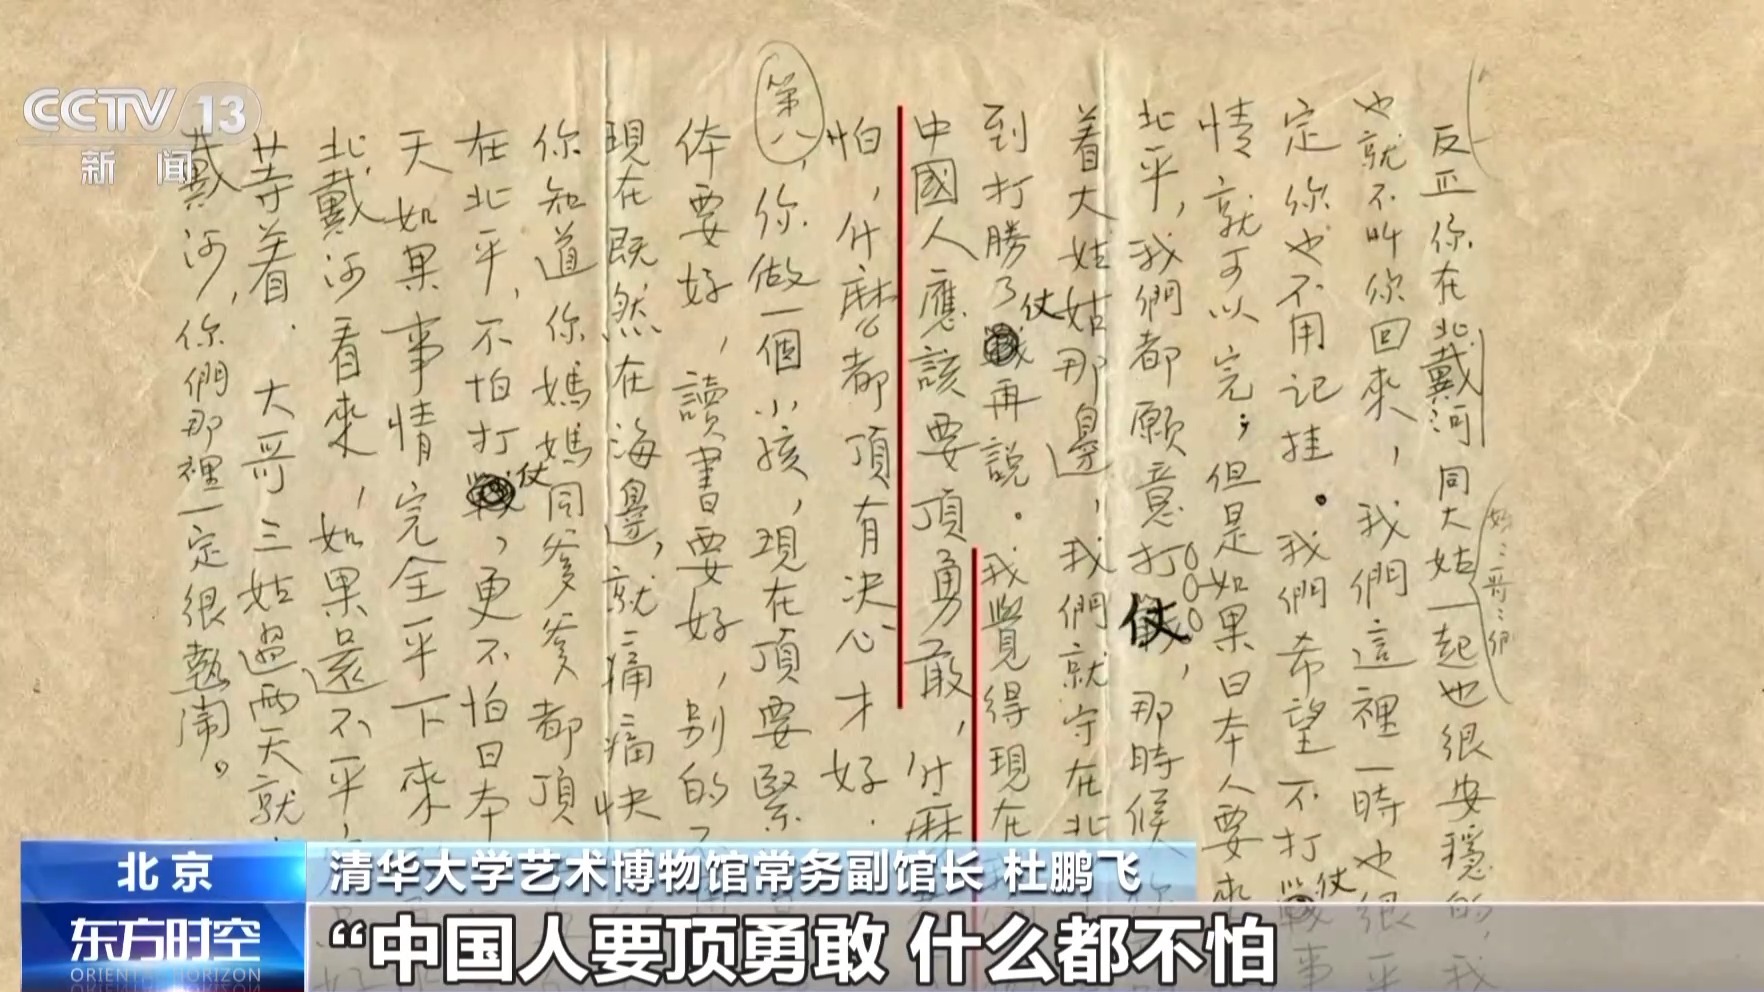 CCTV 13
新闻
反正你在北戴河同大姑一起也很安穩的,我
也就不叫你回來,我們這裡一時也很平
定你也不用记挂。我們希望不打仗事
情就可以完;但是如果日本人要來
北平,我們都願意打仗,那時候你
着大姑姑那邊,我們就守在北
到打勝了仗再説。我覺得現在我
中國人應該要頂勇敢,什麽
怕,什麽都頂有决心才好.
第八,你做一個小孩,現在頂要緊
体要好,讀書要好,別的不
現在既然在海邊,就痛痛快
你知道你媽媽同爹爹都頂
在北平,不怕打仗,更不怕日本
天如果事情完全平下來
北戴河看來,如果還不平
等着.大哥三姑過兩天就
戴河,你們那裡一定很熱鬧。
北京
清华大学艺术博物馆常务副馆长 杜鹏飞
东方时空
ORIENTAL HORIZON
“中国人要顶勇敢 什么都不怕